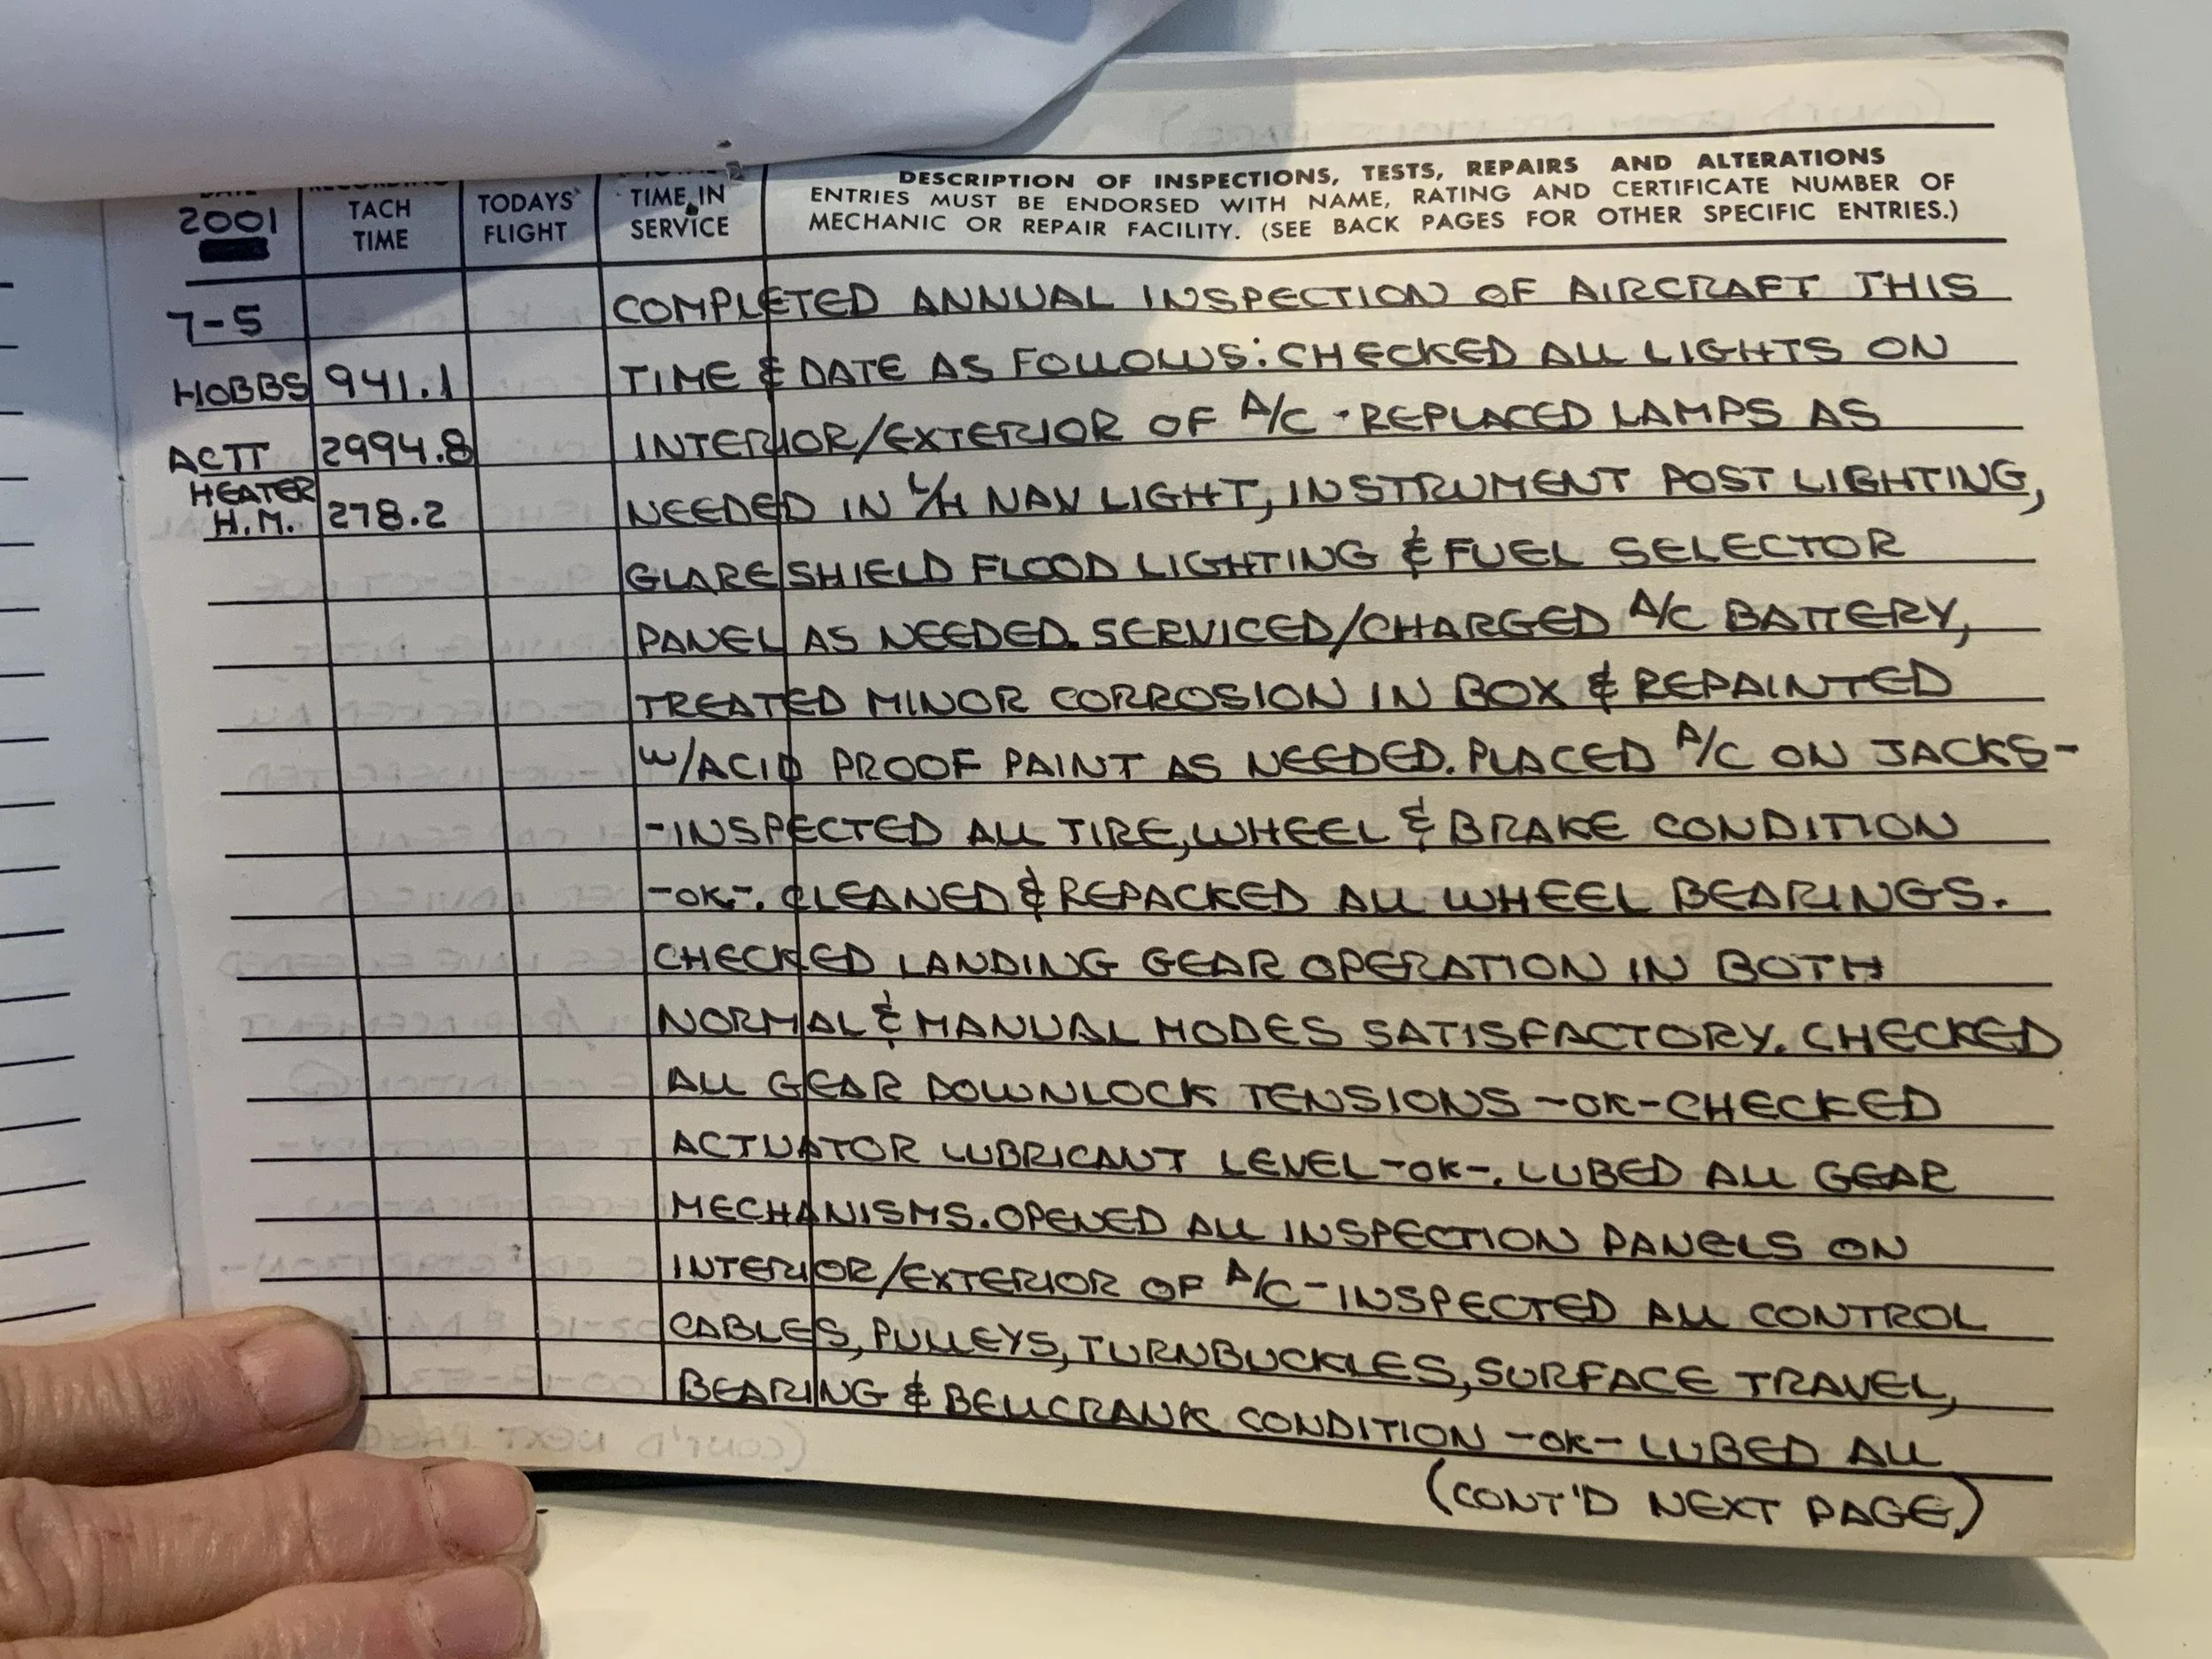 2001
TACH
TIME
TODAYS'
FLIGHT
TIME IN
SERVICE
DESCRIPTION OF INSPECTIONS, TESTS, REPAIRS AND ALTERATIONS
ENTRIES MUST BE ENDORSED WITH NAME, RATING AND CERTIFICATE NUMBER OF
MECHANIC OR REPAIR FACILITY. (SEE BACK PAGES FOR OTHER SPECIFIC ENTRIES.)
7-5 COMPLETED ANNUAL INSPECTION OF AIRCRAFT THIS
HOBBS 941.1 TIME & DATE AS FOLLOWS: CHECKED ALL LIGHTS ON
ACTT 2994.8 INTERIOR/EXTERIOR OF A/C - REPLACED LAMPS AS
HEATER
H.M. 278.2 NEEDED IN L/H NAV LIGHT, INSTRUMENT POST LIGHTING,
GLARESHIELD FLOOD LIGHTING & FUEL SELECTOR
PANEL AS NEEDED. SERVICED/CHARGED A/C BATTERY,
TREATED MINOR CORROSION IN BOX & REPAINTED
W/ACID PROOF PAINT AS NEEDED. PLACED A/C ON JACKS-
-INSPECTED ALL TIRE, WHEEL & BRAKE CONDITION
-OK-. CLEANED & REPACKED ALL WHEEL BEARINGS.
CHECKED LANDING GEAR OPERATION IN BOTH
NORMAL & MANUAL MODES SATISFACTORY. CHECKED
ALL GEAR DOWNLOCK TENSIONS -OK- CHECKED
ACTUATOR LUBRICANT LEVEL -OK-. LUBED ALL GEAR
MECHANISMS. OPENED ALL INSPECTION PANELS ON
INTERIOR/EXTERIOR OF A/C - INSPECTED ALL CONTROL
CABLES, PULLEYS, TURNBUCKLES, SURFACE TRAVEL,
BEARING & BELLCRANK CONDITION -OK- LUBED ALL
(CONT'D NEXT PAGE)